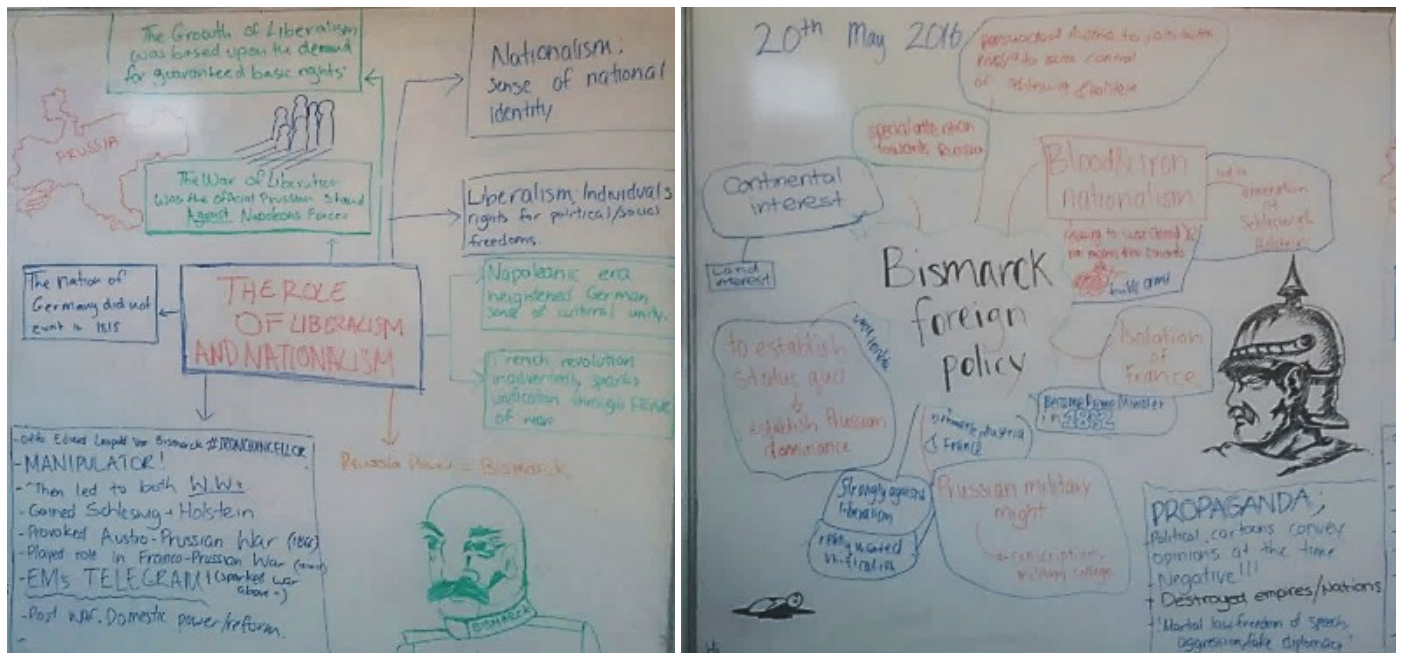 The Growth of Liberalism
was based upon the demand
for guaranteed basic rights
Nationalism:
sense of national
identity
PRUSSIA
The War of Liberation
was the official Prussian stand
Against Napoleons Forces
Liberalism; Individuals
rights for political/social
freedoms.
The Nation of
Germany did not
exist in 1815
THE ROLE
OF LIBERALISM
AND NATIONALISM
Napoleanic era
heightened German
sense of cultural unity.
French revolution
inadvertently sparks
unification through FEAR
of war
- Otto Eduard Leopold Von Bismarck #IRONCHANCELLOR
- MANIPULATOR!
- Then led to both W.W's
- Gained Schleswig + Holstein
- Provoked Austro-Prussian War (1866)
- Played role in Franco-Prussian War
- EMs TELEGRAM! (sparked war
above -)
- Post War. Domestic power/reform.
Prussia Power = Bismarck
BISMARCK
20th May 2016
persuaded Austria to join with
Prussia to take control
of Schleswig Holstein
special attention
towards Russia
Continental
interest
Land
interest
Blood & iron
nationalism
led to
annexation
of
Schleswig
Holstein
build army
Bismarck
foreign
policy
to establish
status quo
establish Prussian
dominance
Isolation
of
France
Became Prime Minister
in 1862
Austria
& France
Strongly against
liberalism
wanted
unification
Prussian military
might
conscription
military college
PROPAGANDA;
Political cartoons convey
opinions at the time
- Negative!!!
- Destroyed empires/Nations
- 'Martial law, freedom of speech,
aggression, fake diplomacy'